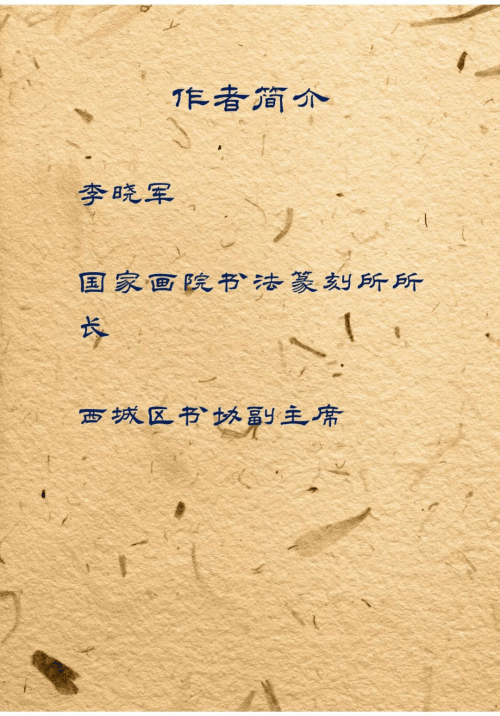 作者简介
李晓军
国家画院书法篆刻所所
长
西城区书协副主席